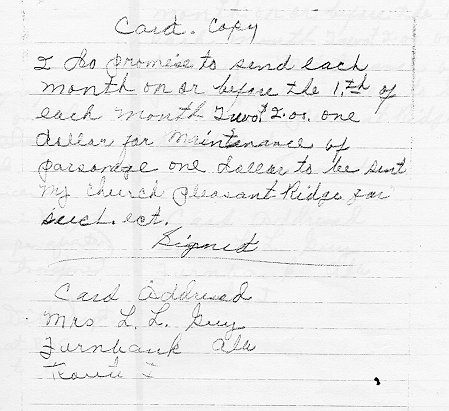 Card. Copy
I do promise to send each
month on or before the 1.th of
each month Two. 2.00. one
dollar for maintenance of
parsonage one dollar to be sent
my church pleasant Ridge for
such. ect.
Signed
Card Address
Mrs L. L. Guy
Furnbank Ala
Route I